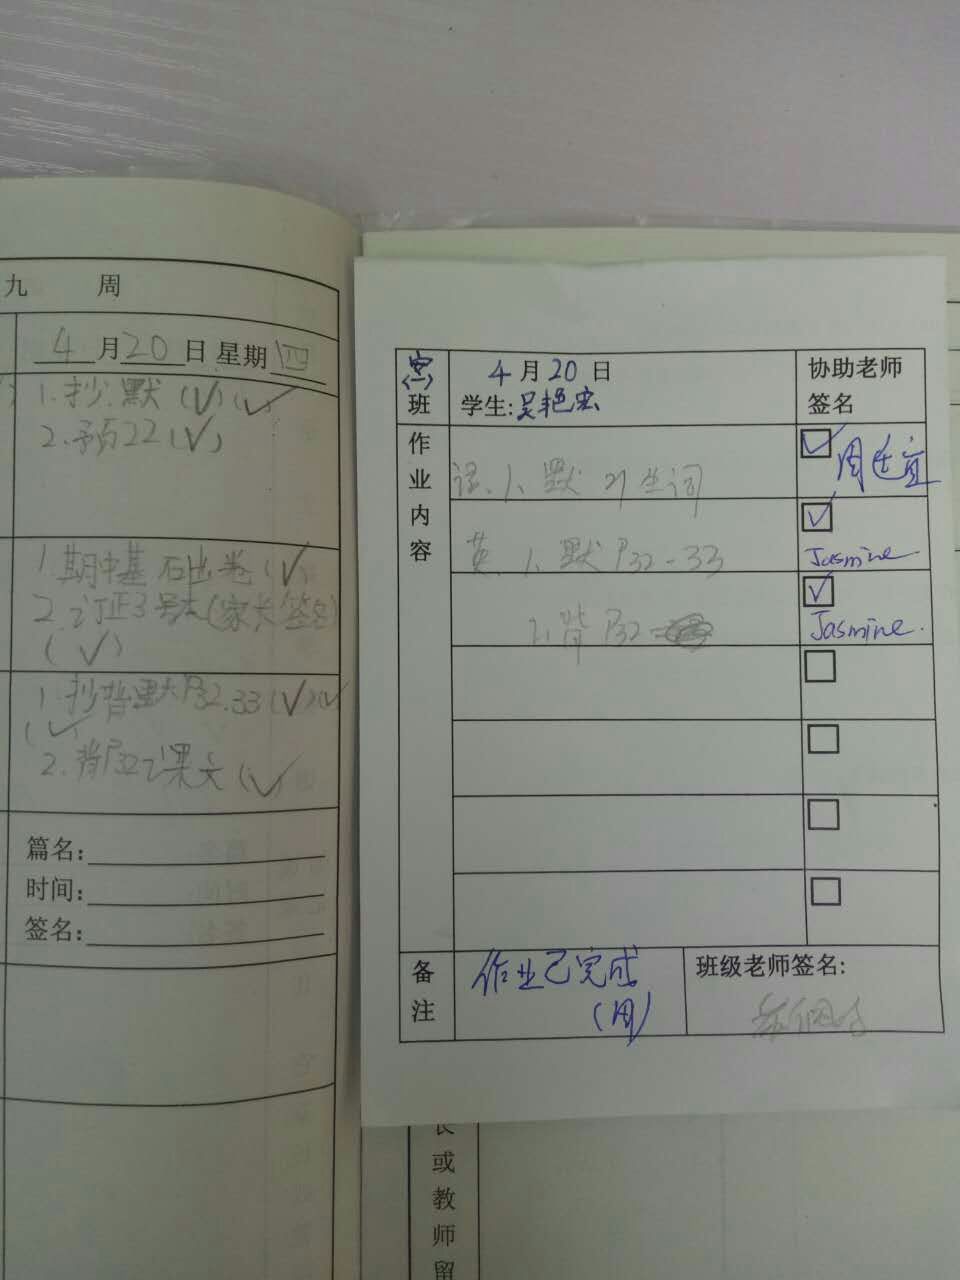 九 周
4月20日 星期四
1.抄.默(✓)(✓
2.予页22(✓)
1.期中基石出卷(✓
2.订正3号本(家长签名)
(✓)
1.抄背默P32.33(✓)(✓
(✓)
2.背P32课文(✓)
篇名:
时间:
签名:
(一)
班
4月20日
学生:吴艳宏
协助老师
签名
作业内容
语、1、默21生词
周廷宜
英、1、默P32-33
Jasmine
2、背P32
Jasmine.
备注
作业已完成
(周)
班级老师签名:
长或教师留